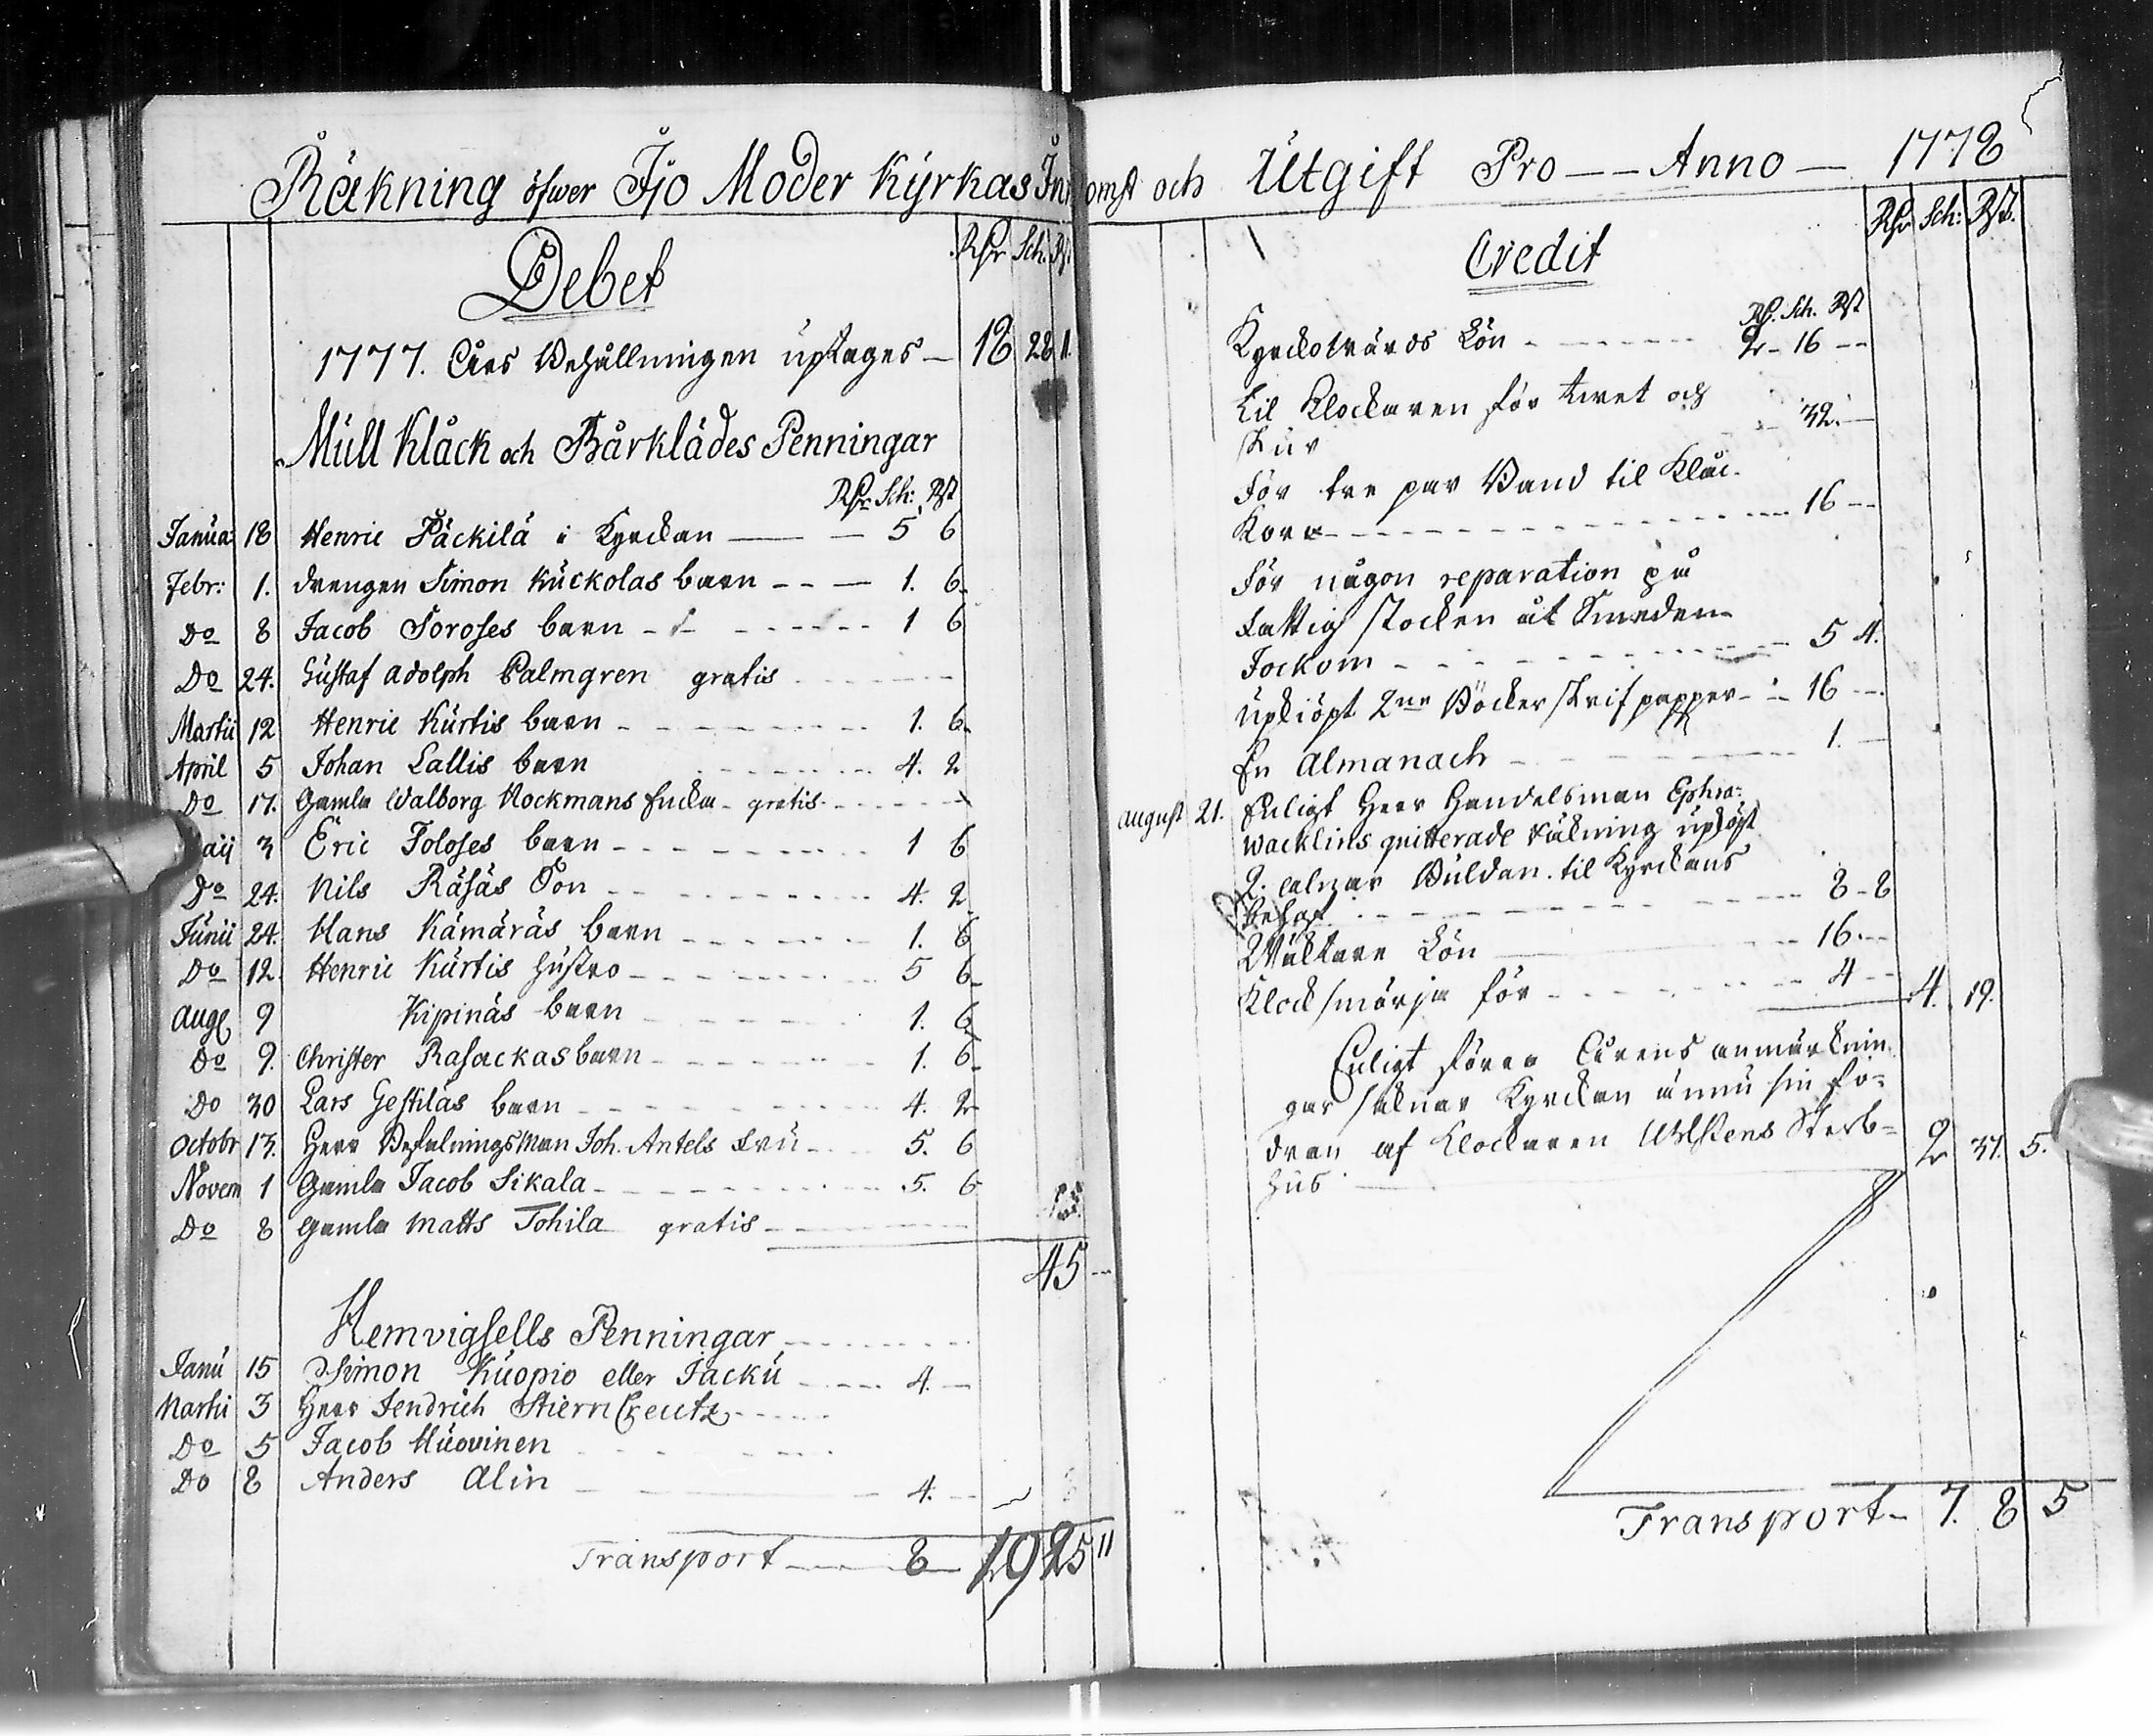 Räkning öfwer Ijo Moder Kyrkas In
Debet
Rdr Sch. Rst.
1777. Års Behållningen uptages — 18 28 11.
Mull Klåck och Bårklädes Penningar
Rdr Sch: Rst
Janua: 18 Henric Päckilä i Kyrckan — — 5 6
Febr: 1. drengen Simon Kuckolas barn - - — 1. 6.
Do 8 Jacob Soroses barn - - - - - 1 6
Do 24. Gustaf Adolph Palmgren gratis - - -
Martii 12 Henric Kurtis barn - - - - 1. 6.
April 5 Johan Lallis barn - - - - 4. 2
Do 17. Gamla Walborg Nockmans Encka - gratis - - - -
aij 3 Eric Toloses barn - - - - 1 6
Do 24. Nils Räsäs Son - - - - 4. 2
Junii 24. Hans Kämäräs barn - - - - 1. 6
Do 12. Henric Kurtis hustro - - - - 5 6
Aug 9 Kipinäs barn - - - - 1. 6
Do 9. Christer Rasackas barn - - - - 1. 6
Do 30 Lars Gestiläs barn - - - - 4. 2
Octobr 13. Herr Befalnings Man Joh. Antels Fru - - - 5. 6
Novem 1 Gamla Jacob Sikala - - - - 5. 6
Do 8 gamla Matts Tohila gratis - - - -
45 --
Hemvigsells Penningar - - - -
Janu 15 Simon Kuopio eller Jacku - - - 4. —
Martii 3 Herr Hendrich StiernCreutz - - - -
Do 5 Jacob Huovinen - - - -
Do 8 Anders Alin - - - - 4. —
Transport — 8 — 19 25 11
omst och Utgift Pro — — Anno — 1778
Rdr Sch: Rst.
Credit
Rdr. Sch. Rst
Kyrckowärds Lön - - - - 2 - 16 --
til Klockaren för twet och - 32. —
skur
För tre par Band til Klåc-
Korn - - - - 16 --
För någon reparation på
Fattig stocken åt Smeden
Jockom - - - - 5 4.
Upkiöpt 2ne Böcker skrif papper - - 16 --
En Almanach - - - - 1. —
August 21. Enligt Herr Handelsman Ephra:
Wacklins quitterade räkning upköpt
2. alnar Buldan til Kyrckans
behof - - - - 8 - 8
Wäcktare Lön — - - 16. --
Klocksmörja för - - - - 4 -- 4. 19.
Enligt förra Årens anmärcknin
gar saknar Kyrckan ännu sin fo-
dran af Klockaren Uhlstens Sterb-
hus — 2 37. 5.
Transport - 7. 8 5